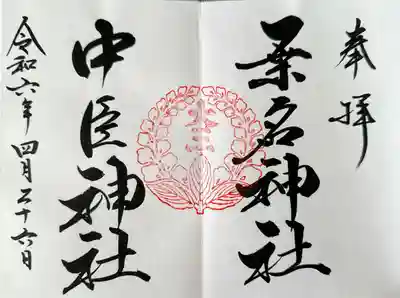 奉拝
桑名神社
中臣神社
令和六年四月二十六日